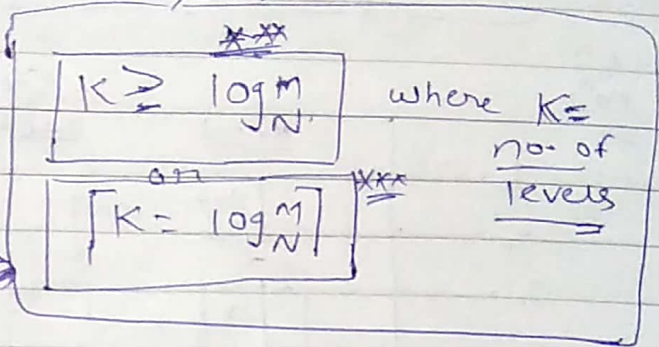 ***
K ≥ log M N where K =
no. of
levels
or
⌈K = log M N⌉ ***